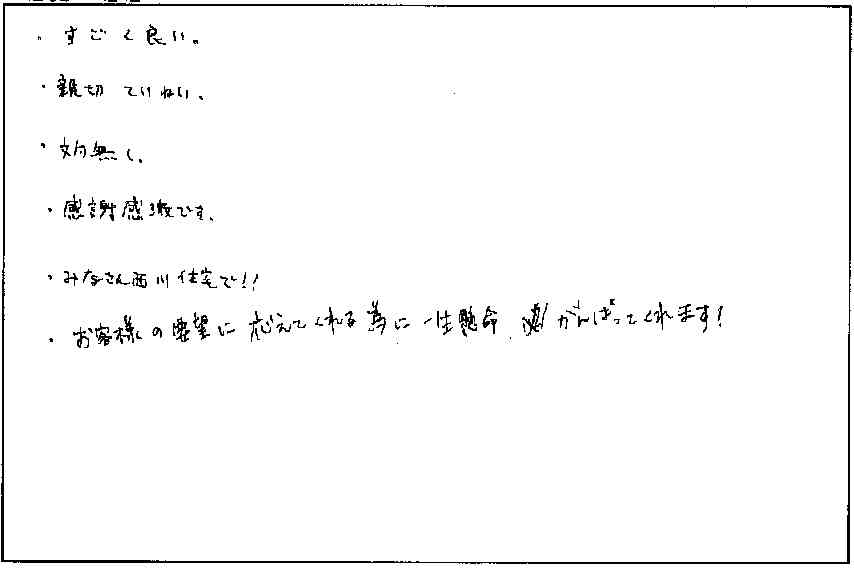 ・すごく良い。
・親切ていねい。
・文句無し。
・感謝感激です。
・みなさん西川住宅で!!
・お客様の要望に応えてくれる為に一生懸命、がんばってくれます!